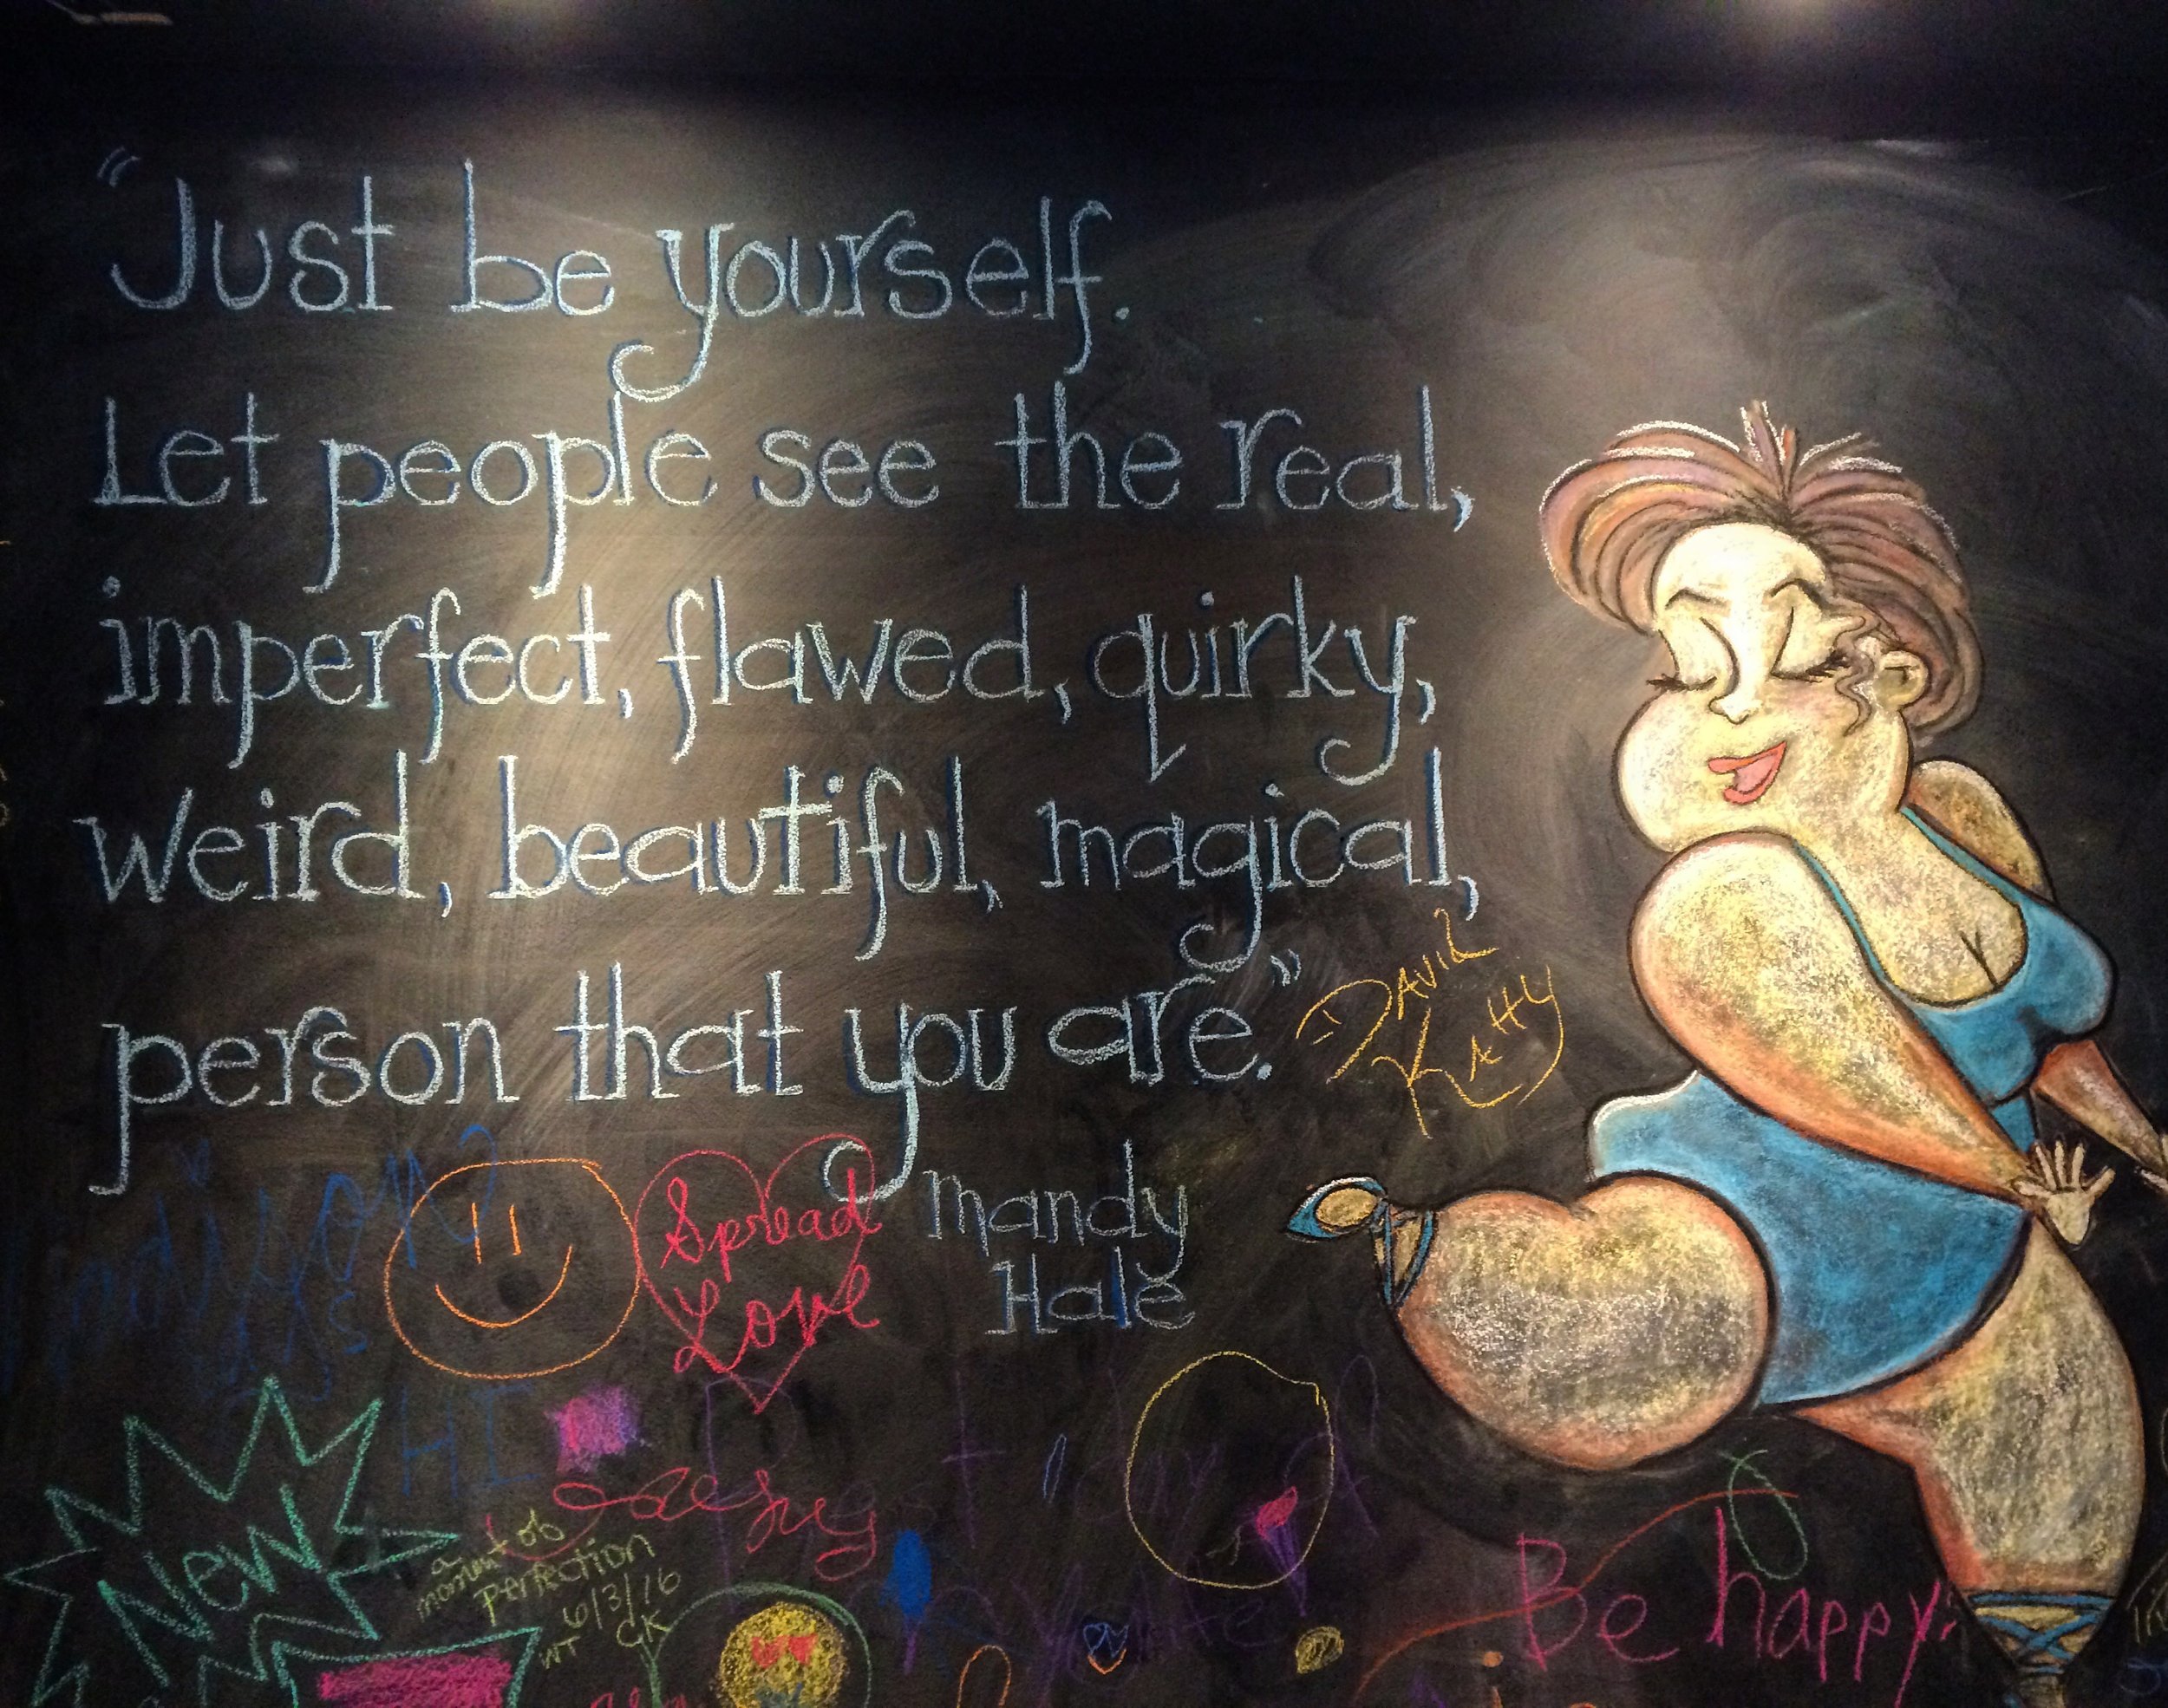 "Just be yourself.
Let people see the real,
imperfect, flawed, quirky,
weird, beautiful, magical,
person that you are."
David
Kathy
Mandy
Hale
Spread
Love
HI
New
a
moment of
perfection
6/3/16
WT GK
Be happy